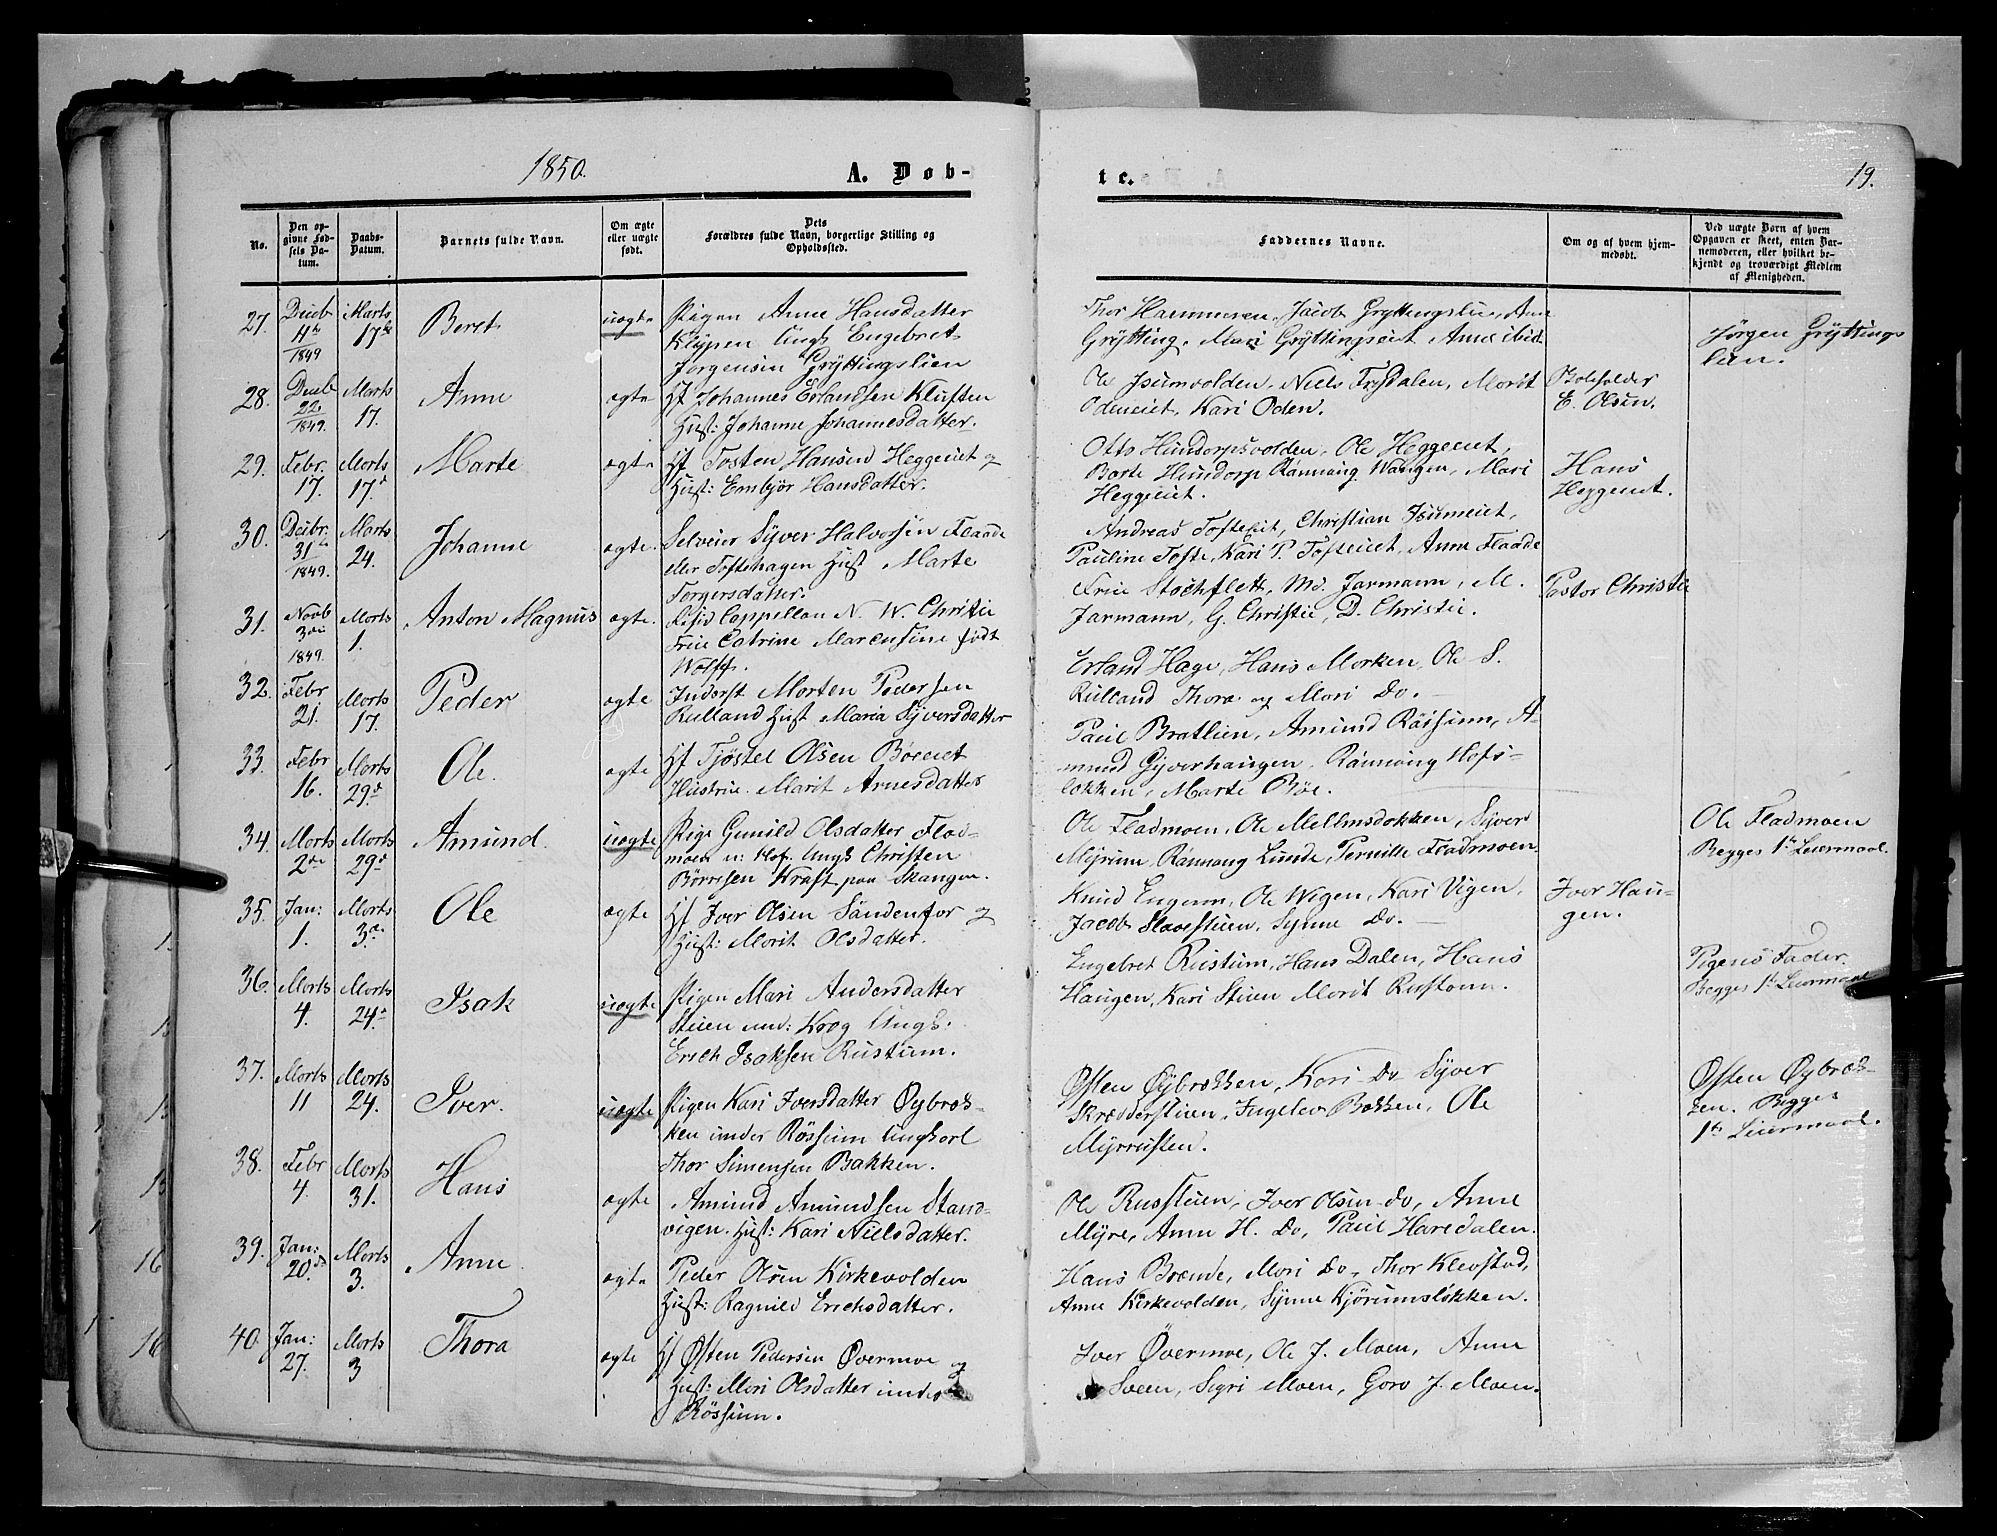 1850.
A. Døb-
te.
19.
No.
Den op-
givne Fød-
sels Da-
tum.
Daabs-
Datum.
Barnets fulde Navn.
Om ægte
eller uægte
født.
Dets
Forældres fulde Navn, borgerlige Stilling og
Opholdssted.
Faddernes Navne.
Om og af hvem hjem-
medøbt.
Ved uægte Børn af hvem
Opgaven er skeet, enten Bar-
nemoderen, eller hvilket be-
kjendt og troværdigt Medlem
af Menigheden.
27. Decb 4de 1849 Marts 17de Beret uægte Pigen Anne Hansdatter
Engebret
Jørgensen Gryttingslien
Thor Hammeren, Jacob Gryttingslien, Anne
Grytting, Mari Gryttingseiet Anne ibid
Jørgen Gryttings
lien.
28. Decb 22 1849. Marts 17. Anne ægte Hf Johannes Erlandsen Kluften
Hust: Johanne Johannesdatter.
Ole Isumvolden, Niels Frydalen, Marit
Odeneiet, Kari Oden.
E. Olsen.
29. Febr. 17. Marts 17d Marte ægte Hf Tosten Hansen Heggeeiet og
Hust: Embjør Hansdatter.
Otto Hundorpsvolden, Ole Heggeeiet,
Barte Hundorp Rønnaug Wangen, Mari
Heggeeiet.
Hans
Heggeeiet.
30. Decbr. 31te 1849. Marts 24. Johanne ægte. Selveier Syver Halvorsen Flaade
eller Toftehagen Hust Marte
Torgersdatter.
Andreas Tofteeiet, Christian Isumeiet,
Pauline Tofte, Kari P. Tofteeiet, Anne Flaade
31. Novb 3die 1849. Marts 1. Anton Magnus ægte. Resid Cappellan N. W. Christie
Frue Catrine Marensine født
Wolff.
Frue Stochfleth, Md. Jarmann, M.
Jarmann, G. Christie, D. Christie.
Pastor Christie
32. Febr 21. Marts 17. Peder ægte Inderst Morten Pedersen
Rulland Hust Maria Syversdatter
Erland Hage, Hans Morken, Ole S.
Rulland Thora og Mari Do.
33. Febr 16. Marts 29d Ole. ægte Hf Tjøstel Olsen Bøeeiet
Hustrue Marit Arnesdatter
Paul Bratlien, Amund Røssum, A-
mund Gyverhaugen, Rønnaug Hofs-
løkken, Marte Bøe.
34. Marts 2de Marts 29d Amund. uægte Pige Gunild Olsdatter Flad-
moen u: Hof. Ungk Christen
Børresen Kraft paa Skaugen.
Ole Fladmoen, Ole Mellmsløkken, Syver
Myrum, Rønnaug Lunde, Pernille Fladmoen
Ole Fladmoen
Begges 1ste Leiermaal.
35. Jan: 1. Marts 3d Ole ægte Hf Iver Olsen Sandenfor og
Hust: Marit Olsdatter.
Knud Engum, Ole Wigen, Kari Vigen,
Jacob Slavestuen, Synne Do.
Iver Hau-
gen.
36. Marts 4. Marts 24d Isak uægte Pigen Mari Andersdatter
Stuen und: Krog Ungk:
Erich Isaksen Rustum.
Engebret Rustum, Hans Dalen, Hans
Haugen, Kari Stuen Marit Rustum.
Pigens Fader.
Begges 1t Leiermaal
37. Marts 11 Marts 24. Iver. uægte Pigen Kari Iversdatter Øybræk-
ken under Røssum Ungkarl
Thor Simensen Bakken.
Østen Øybrækken, Kari Do Syver
Skrædderstuen, Ingelev Bakken, Ole
Myrrusten.
Østen Øybræk-
ken. Begges
1te Leiermaal.
38. Febr 4. Marts 31. Hans ægte Amund Amundsen Stand-
vigen. Hust: Kari Nielsdatter.
Ole Russtuen, Iver Olsen Do, Anne
Myre, Anne H. Do, Paul Haredalen.
39. Jan: 20de Marts 3. Anne ægte Peder Olsen Kirkevolden
Hust: Ragnild Erichsdatter.
Hans Brænde, Mari Do, Thor Klevstad,
Anne Kirkevolden, Synne Kjørumsløkken.
40. Jan: 27. Marts 3 Thora ægte Hf Østen Pedersen Øvermoe og
Hust: Mari Olsdatter under
Røssum.
Iver Øvermoe, Ole J. Moen, Anne
Sveen, Sigri Moen, Goro J. Moen.